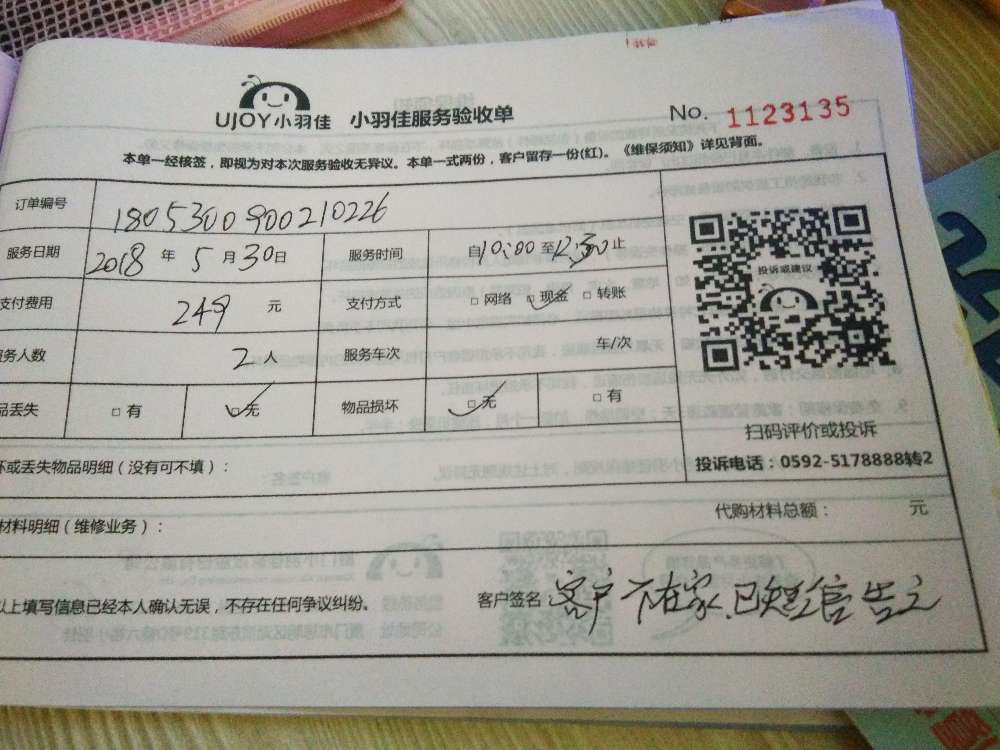 UJOY小羽佳 小羽佳服务验收单 No. 1123135
本单一经核签，即视为对本次服务验收无异议。本单一式两份，客户留存一份(红)。《维保须知》详见背面。
订单编号 1805300900210226
服务日期 2018 年 5 月 30 日 服务时间 自10:00至12:30止
支付费用 249 元 支付方式 □网络 □现金 □转账
服务人数 2人 服务车次 车/次
品丢失 □有 □无 物品损坏 □无 □有
投诉或建议
扫码评价或投诉
投诉电话：0592-5178888转2
坏或丢失物品明细（没有可不填）：
材料明细（维修业务）： 代购材料总额： 元
以上填写信息已经本人确认无误，不存在任何争议纠纷。 客户签名：客户不在家.已短信告之